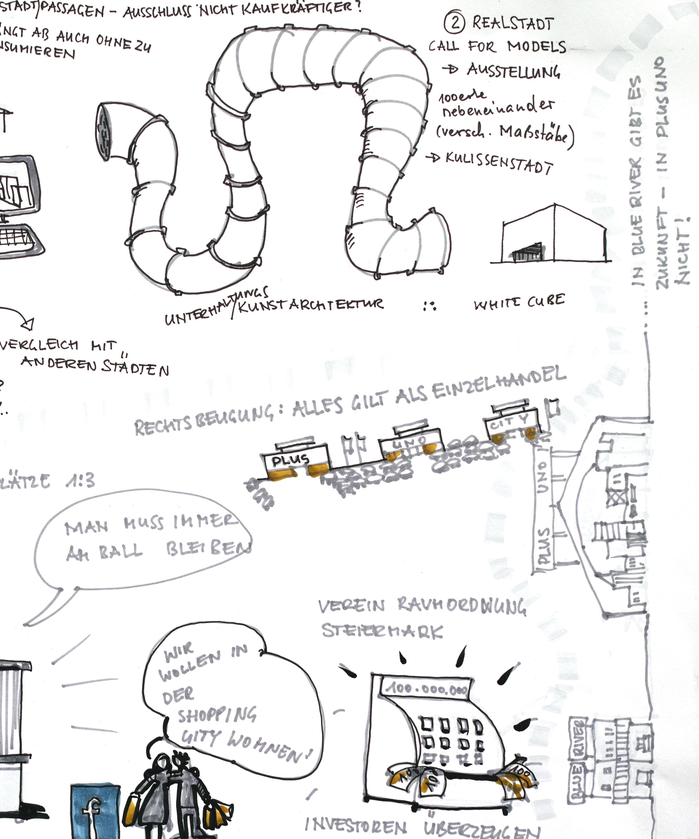 STADT)PASSAGEN – AUSSCHLUSS NICHT KAUFKRÄFTIGER?
NGT AB AUCH OHNE ZU
NSUMIEREN
② REALSTADT
CALL FOR MODELS
→ AUSSTELLUNG
100erte
nebeneinander
(versch. Maßstäbe)
→ KULISSENSTADT
UNTERHALTUNGS/KUNSTARCHITEKTUR :: WHITE CUBE
IN BLUE RIVER GIBT ES
ZUKUNFT – IN PLUS UNO
NICHT!
VERGLEICH MIT
ANDEREN STÄDTEN
?
RECHTSBEUGUNG: ALLES GILT ALS EINZELHANDEL
PLUS
UNO
CITY
PLUS UNO
LÄTZE 1:3
MAN MUSS IMMER
AM BALL BLEIBEN
VEREIN RAUMORDNUNG
STEIERMARK
WIR
WOLLEN IN
DER
SHOPPING
CITY WOHNEN!
100.000.000
100
100
BLUE RIVER
f
INVESTOREN ÜBERZEUGEN